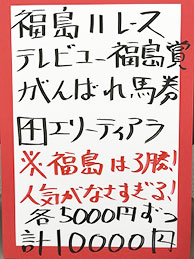 福島11レース
テレビュー福島賞
がんばれ馬券
④エリーティアラ
※福島は3勝!
人気がなさすぎる!
各5000円ずつ
計10000円